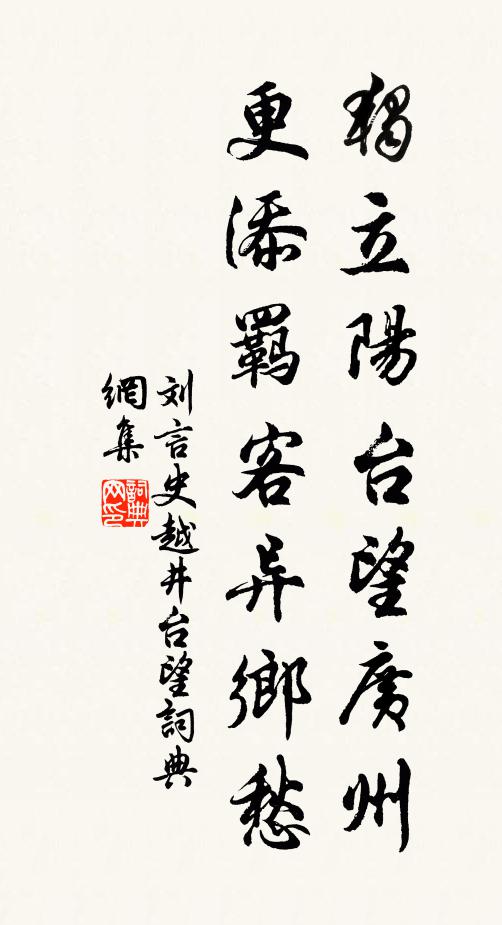 獨立陽台望廣州
更添羈客异鄉愁
刘言史越井台望詞典
網集
詞典
网印